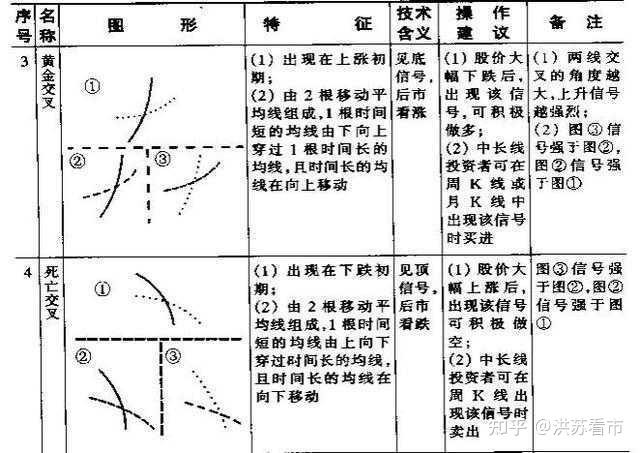 序号 名称 图 形 特 征 技术含义 操作建议 备 注
3
黄金交叉
①
②
③
(1) 出现在上涨初
期;
(2) 由2根移动平
均线组成,1根时间
短的均线由下向上
穿过1根时间长的
均线,且时间长的均
线在向上移动
见底
信号,
后市
看涨
(1) 股价大
幅下跌后,
出现该信
号,可积极
做多;
(2) 中长线
投资者可在
周K线或
月K线中
出现该信号
时买进
(1) 两线交
叉的角度越
大,上升信号
越强烈;
(2) 图③信
号强于图②,
图②信号强
于图①
4
死亡交叉
①
②
③
(1) 出现在下跌初
期;
(2) 由2根移动平
均线组成,1根时间
短的均线由上向下
穿过时间长的均线,
且时间长的均线在
向下移动
见顶
信号,
后市
看跌
(1) 股价大
幅上涨后,
出现该信号
可积极做
空;
(2) 中长线
投资者可在
周K线出
现该信号时
卖出
图③信号强
于图②,图②
信号强于图
①
知乎 @洪苏看市